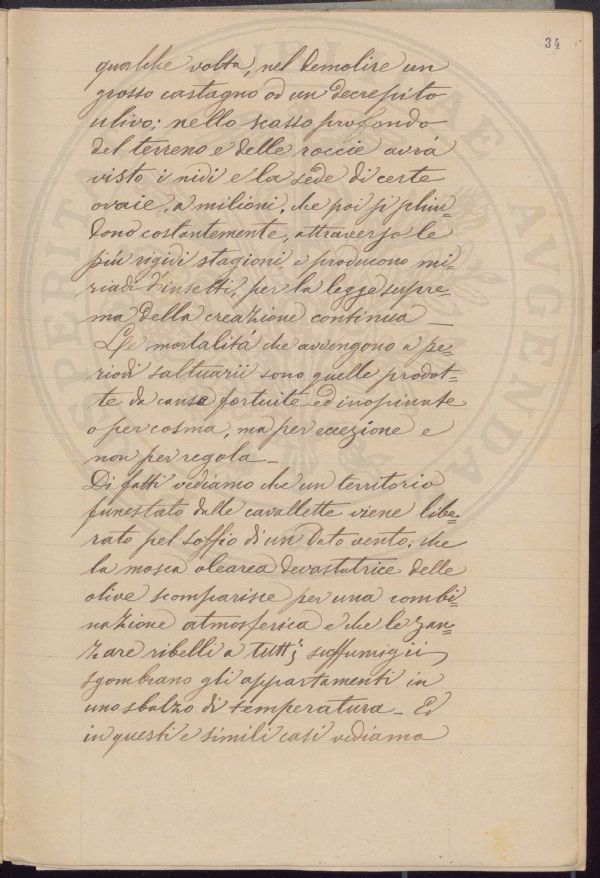 34
qualche volta, nel demolire un
grosso castagno od un decrepito
ulivo; nello scasso profondo
del terreno e delle roccie avrà
visto i nidi e la sede di certe
ovaie, a milioni, che poi si schiu=
dono costantemente, attraverso le
più rigidi stagioni e producono mi=
riadi d'insetti, per la legge supre=
ma della creazione continua —
Le mortalità che avvengono a pe=
riodi saltuarii sono quelle prodot=
te da causa fortuite ed inopinate
o per cosma, ma per eccezione e
non per regola —
Di fatti vediamo che un territorio
funestato dalle cavallette viene libe=
rato pel soffio di un dato vento; che
la mosca olearea devastatrice delle
olive scomparisce per una combi=
nazione atmosferica e che le zan=
zare ribelli a tutti i suffumigii
sgombrano gli appartamenti in
uno sbalzo di temperatura — Ed
in questi e simili casi vediamo
VELITRAE
AUGENDA